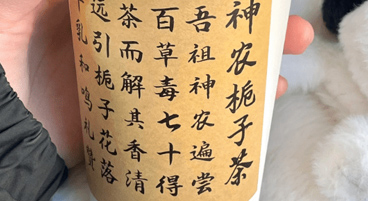 神农栀子茶
吾祖神农遍尝
百草毒七十得
茶而解其香清
远引栀子花落
乳和鸣礼赞